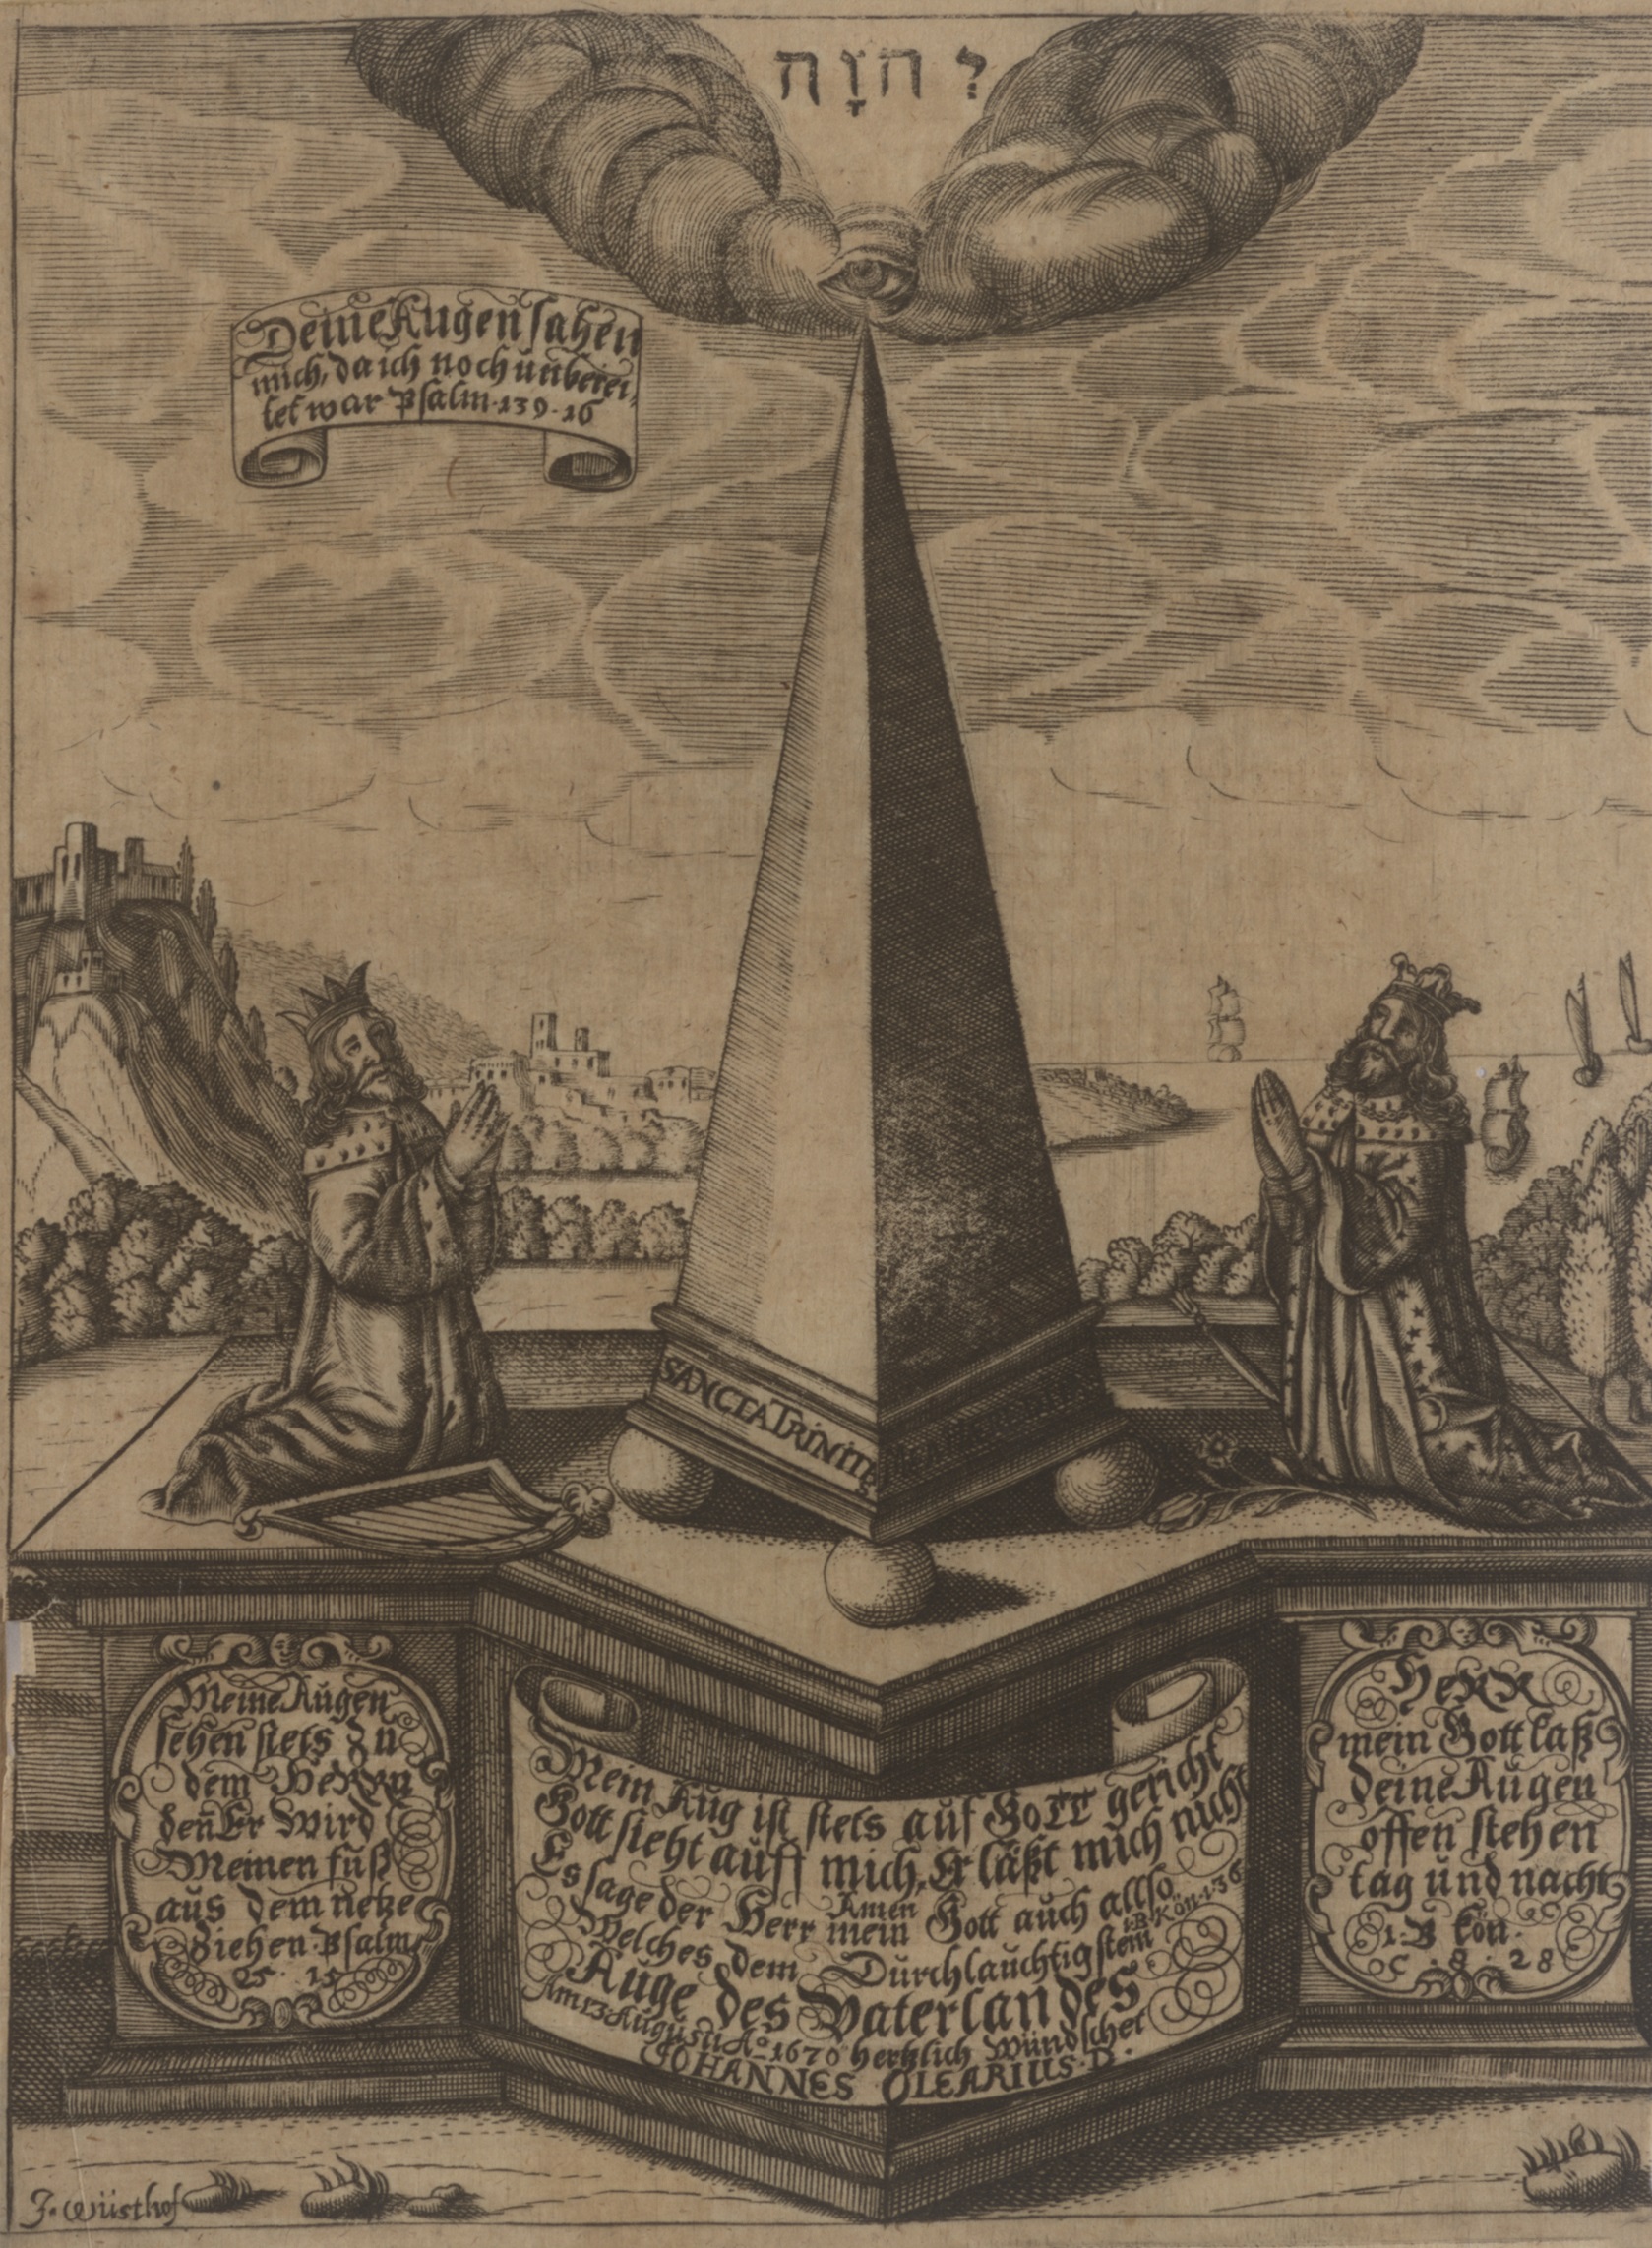 יְהוָה
Deine Augen sahen
mich, da ich noch unberei„
tet war Psalm·139·16
SANCTA TRINITE
S
Meine Augen
sehen stets Zu
dem HeRRn
deñ Er Wird
Meinen fuß
aus dem netze
Ziehen·Psalm
25·15
Mein Aug ist stets auf GoTT gericht
Gott sieht auff mich, Er läßt mich nicht
Es sage der Herr mein Gott auch allso
Amen
1·B·Kön·1·36
Welches dem Durchlauchtigstem
Auge des Vaterlandes
Am 13 Augusti Aº 1670 hertzlich Wündschet
JOHANNES OLEARIUS·D·
HeRR
mein Gott laß
deine Augen
offen stehen
tag und nacht
1·B Kön·
C·8·28
J·Wüsthof